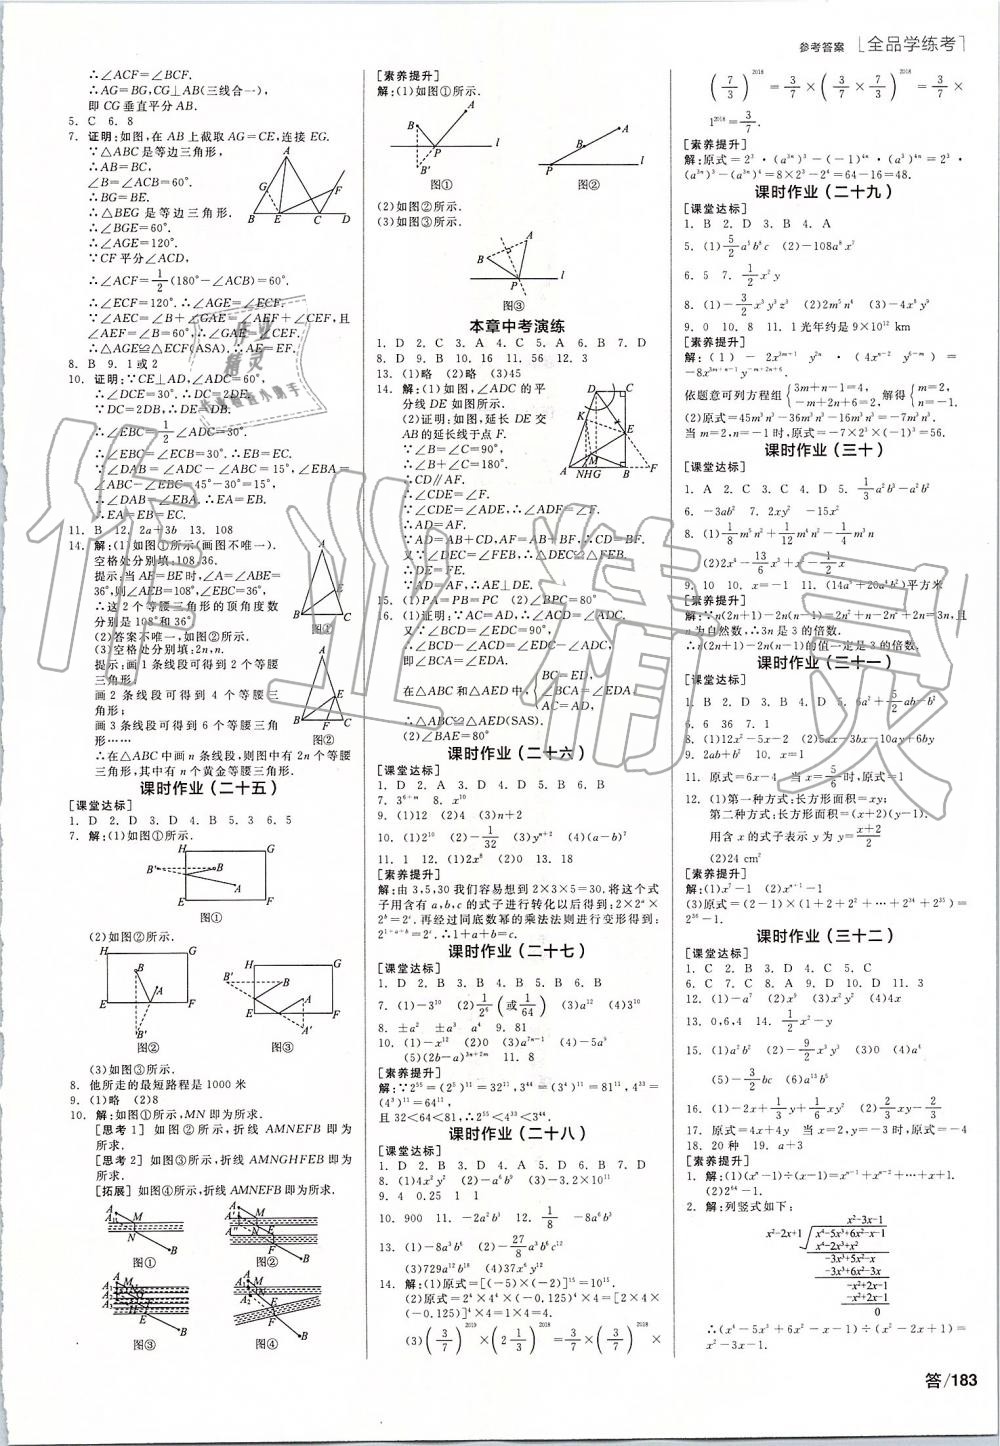 参考答案 [全品学练考]
∴∠ACF=∠BCF.
∴AG=BG,CG⊥AB(三线合一),
即CG垂直平分AB.
5. C 6. 8
7. 证明:如图,在AB上截取AG=CE,连接EG.
∵△ABC是等边三角形,
∴AB=BC,
∠B=∠ACB=60°.
∴BG=BE.
∴△BEG是等边三角形.
∴∠BGE=60°.
∴∠AGE=120°.
∵CF平分∠ACD,
∴∠ACF=1/2(180°-∠ACB)=60°.
∴∠ECF=120°.∴∠AGE=∠ECF.
∵∠AEC=∠B+∠GAE=∠AEF+∠CEF,且
∠AEF=∠B=60°,∴∠GAE=∠CEF.
∴△AGE≌△ECF(ASA).∴AE=EF.
8. B 9. 1或2
10. 证明:∵CE⊥AD,∠ADC=60°,
∴∠DCE=30°.∴DC=2DE.
∵DC=2DB,∴DE=DB.
∴∠EBC=1/2∠ADC=30°.
∴∠EBC=∠ECB=30°.∴EB=EC.
∵∠DAB=∠ADC-∠ABC=15°,∠EBA=
∠ABC-∠EBC=45°-30°=15°,
∴∠DAB=∠EBA.∴EA=EB.
∴EA=EB=EC.
11. B 12. 2a+3b 13. 108
14. 解:(1)如图①所示(画图不唯一).
空格处分别填:108,36.
提示:当AE=BE时,∠A=∠ABE=
36°,则∠AEB=108°,∠EBC=36°,
∴这2个等腰三角形的顶角度数
分别是108°和36°.
(2)答案不唯一,如图②所示.
(3)空格处分别填:2n,n.
提示:画1条线段可得到2个等腰
三角形;
画2条线段可得到4个等腰三
角形;
画3条线段可得到6个等腰三角
形……
∴在△ABC中画n条线段,则图中有2n个等腰
三角形,其中有n个黄金等腰三角形.
课时作业(二十五)
[课堂达标]
1. D 2. D 3. D 4. B 5. 3 6. 5
7. 解:(1)如图①所示.
图①
(2)如图②所示.
图② 图③
(3)如图③所示.
8. 他所走的最短路程是1000米
9. (1)略 (2)8
10. 解:如图①所示,MN即为所求.
[思考1] 如图②所示,折线AMNEFB即为
所求.
[思考2] 如图③所示,折线AMNGHFEB即为
所求.
[拓展] 如图④所示,折线AMNEFB即为所求.
图① 图②
图③ 图④
[素养提升]
解:(1)如图①所示.
图① 图②
(2)如图②所示.
(3)如图③所示.
图③
本章中考演练
1. D 2. C 3. A 4. C 5. A 6. B 7. D
8. D 9. B 10. 16 11. 56 12. 3
13. (1)略 (2)略 (3)45
14. 解:(1)如图,∠ADC的平
分线DE如图所示.
(2)证明:如图,延长DE交
AB的延长线于点F.
∵∠B=∠C=90°,
∴∠B+∠C=180°.
∴CD∥AF.
∴∠CDE=∠F.
∵∠CDE=∠ADE,∴∠ADF=∠F.
∴AD=AF.
∵AD=AB+CD,AF=AB+BF,∴CD=BF.
又∵∠DEC=∠FEB,∴△DEC≌△FEB.
∴DE=FE.
又∵AD=AF,∴AE⊥DE.
15. (1)PA=PB=PC (2)∠BPC=80°
16. (1)证明:∵AC=AD,∴∠ACD=∠ADC.
又∵∠BCD=∠EDC=90°,
∴∠BCD-∠ACD=∠EDC-∠ADC,
即∠BCA=∠EDA.
在△ABC和△AED中,{BC=ED, ∠BCA=∠EDA, AC=AD,
∴△ABC≌△AED(SAS).
(2)∠BAE=80°
课时作业(二十六)
[课堂达标]
1. D 2. A 3. D 4. D 5. B 6. B
7. 3⁶⁺ᵐ 8. x¹⁰
9. (1)12 (2)4 (3)n+2
10. (1)2¹⁰ (2)-1/32 (3)yⁿ⁺² (4)(a-b)⁷
11. 1 12. (1)2x⁸ (2)0 13. 18
[素养提升]
解:由3,5,30我们容易想到2×3×5=30.将这个式
子用含有a,b,c的式子进行转化以后得到:2×2ᵃ×
2ᵇ=2ᶜ.再经过同底数幂的乘法法则进行变形得到:
2¹⁺ᵃ⁺ᵇ=2ᶜ.∴1+a+b=c.
课时作业(二十七)
[课堂达标]
1. D 2. B 3. B 4. B 5. B 6. A
7. (1)-3¹⁰ (2)1/2⁶(或1/64) (3)a¹² (4)3¹⁰
8. ±a² ±a³ a⁴ 9. 81
10. (1)-x¹² (2)0 (3)a⁷ⁿ⁻¹ (4)-5a⁹
(5)(2b-a)³ⁿ⁺²ᵐ 11. 8
[素养提升]
解:∵2⁵⁵=(2⁵)¹¹=32¹¹,3⁴⁴=(3⁴)¹¹=81¹¹,4³³=
(4³)¹¹=64¹¹,
且32<64<81,∴2⁵⁵<4³³<3⁴⁴.
课时作业(二十八)
[课堂达标]
1. D 2. B 3. C 4. D 5. A 6. B 7. D
8. (1)4x² (2)-a⁶ (3)-3.2×10¹¹
9. 4 0.25 1 1
10. 900 11. -2a²b³ 12. 1/8 -8a⁶b³
13. (1)-8a³b⁶ (2)-27/8a³b⁶c¹²
(3)729a¹²b⁶ (4)37x⁶y¹²
14. 解:(1)原式=[(-5)×(-2)]¹⁵=10¹⁵.
(2)原式=2⁴×4⁴×(-0.125)⁴×4=[2×4×
(-0.125)]⁴×4=1×4=4.
(3)(3/7)²⁰¹⁹×(2 1/3)²⁰¹⁸=3/7×(3/7)²⁰¹⁸×
(7/3)²⁰¹⁸=3/7×(3/7×7/3)²⁰¹⁸=3/7×
1²⁰¹⁸=3/7.
[素养提升]
解:原式=2³·(a³ⁿ)³-(-1)⁴ⁿ·(a³)⁴ⁿ=2³·
(a³ⁿ)³-(a³ⁿ)⁴=8×2³-2⁴=64-16=48.
课时作业(二十九)
[课堂达标]
1. B 2. D 3. B 4. A
5. (1)5/2a⁵b⁸c (2)-108a⁸x⁷
6. 5 7. 1/2x²y
8. (1)-3/2x³y³z³ (2)2m⁵n⁴ (3)-4x⁶y⁸
9. 0 10. 8 11. 1光年约是9×10¹² km
[素养提升]
解:(1)-2x³ᵐ⁻¹y²ⁿ·(4xⁿ⁻²y⁶⁻ᵐ)=
-8x³ᵐ⁺ⁿ⁻¹y⁻ᵐ⁺²ⁿ⁺⁶.
依题意可列方程组{3m+n-1=4, -m+2n+6=2, 解得{m=2, n=-1.
(2)原式=45m³n²-36m³n²-16m³n²=-7m³n².
当m=2,n=-1时,原式=-7×2³×(-1)²=56.
课时作业(三十)
[课堂达标]
1. A 2. C 3. C 4. D 5. 1/3a²b²-a²b²
6. -3ab² 7. 2xy² -15x²
9. 10 10. x=-1 11. (14a³+26a²b²)平方米
[素养提升]
解:∵n(2n+1)-2n(n-1)=2n²+n-2n²+2n=3n,且
n为自然数,∴3n是3的倍数.
∴n(2n+1)-2n(n-1)的值一定是3的倍数.
课时作业(三十一)
[课堂达标]
1. B 2. B 3. A 4. D 5. 6a²+5/2ab-b²
6. 6 36 7. 1
8. (1)12x²-5x-2 (2)5ax-3bx-10ay+6by
9. 2ab+b² 10. x=1
11. 原式=6x-4 当x=5/6时,原式=1
12. (1)第一种方式:长方形面积=xy;
第二种方式:长方形面积=(x+2)(y-1).
用含x的式子表示y为y=(x+2)/2
(2)24 cm²
[素养提升]
解:(1)x⁷-1 (2)xⁿ⁺¹-1
(3)原式=(2-1)×(1+2+2²+…+2³⁴+2³⁵)=
2³⁶-1.
课时作业(三十二)
[课堂达标]
1. C 2. B 3. D 4. C 5. C
6. C 7. C 8. A 9. D 10. D 11. 3
12. (1)-a⁷ (2)x⁹ (3)x²y² (4)4x
13. 0,6,4 14. 1/2x²-y
15. (1)a²b² (2)-9/2x³y³ (3)0 (4)a⁴
(5)-3/2bc (6)a¹³b⁵
17. 原式=4x+4y 当x=2,y=-3时,原式=-4
18. 20种 19. a+3
[素养提升]
1. 解:(1)(xⁿ-1)÷(x-1)=xⁿ⁻¹+xⁿ⁻²+…+x+1.
(2)2⁶⁴-1.
2. 解:列竖式如下:
x²-3x-1
x²-2x+1 √x⁴-5x³+6x²-x-1
x⁴-2x³+x²
-3x³+5x²-x
-3x³+6x²-3x
-x²+2x-1
-x²+2x-1
0
∴(x⁴-5x³+6x²-x-1)÷(x²-2x+1)=
x²-3x-1.
答/183